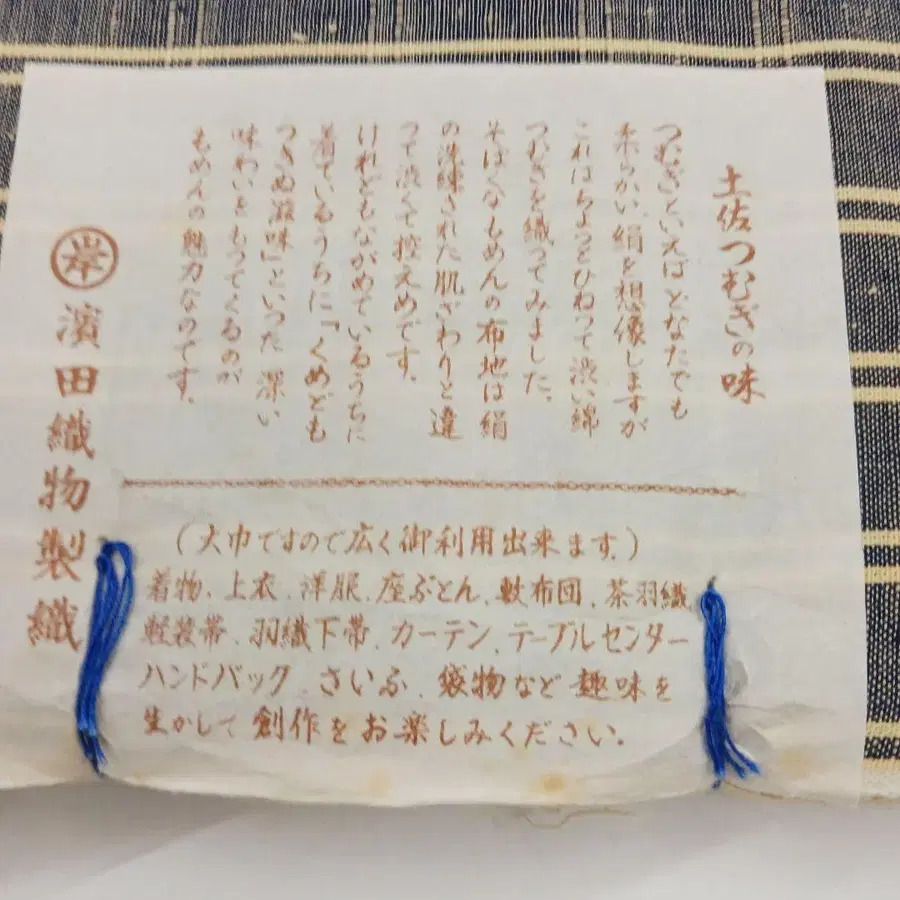 土佐つむぎの味
つむぎといえばどなたでも
柔らかい絹を想像しますが
これはちょっとひねって渋い綿
つむぎを織ってみました。
そぼくなもめんの布地は絹
の洗練された肌ざわりと違
って渋くて控えめです。
けれどもながめているうちに
着ているうちに「くめども
つきぬ滋味」といった深い
味わいをもってくるのが
もめんの魅力なのです。
濱田織物製織
(大巾ですので広く御利用出来ます。)
着物、上衣、洋服、座ぶとん、敷布団、茶羽織
軽装帯、羽織下帯、カーテン、テーブルセンター
ハンドバック、さいふ、袋物など趣味を
生かして創作をお楽しみください。